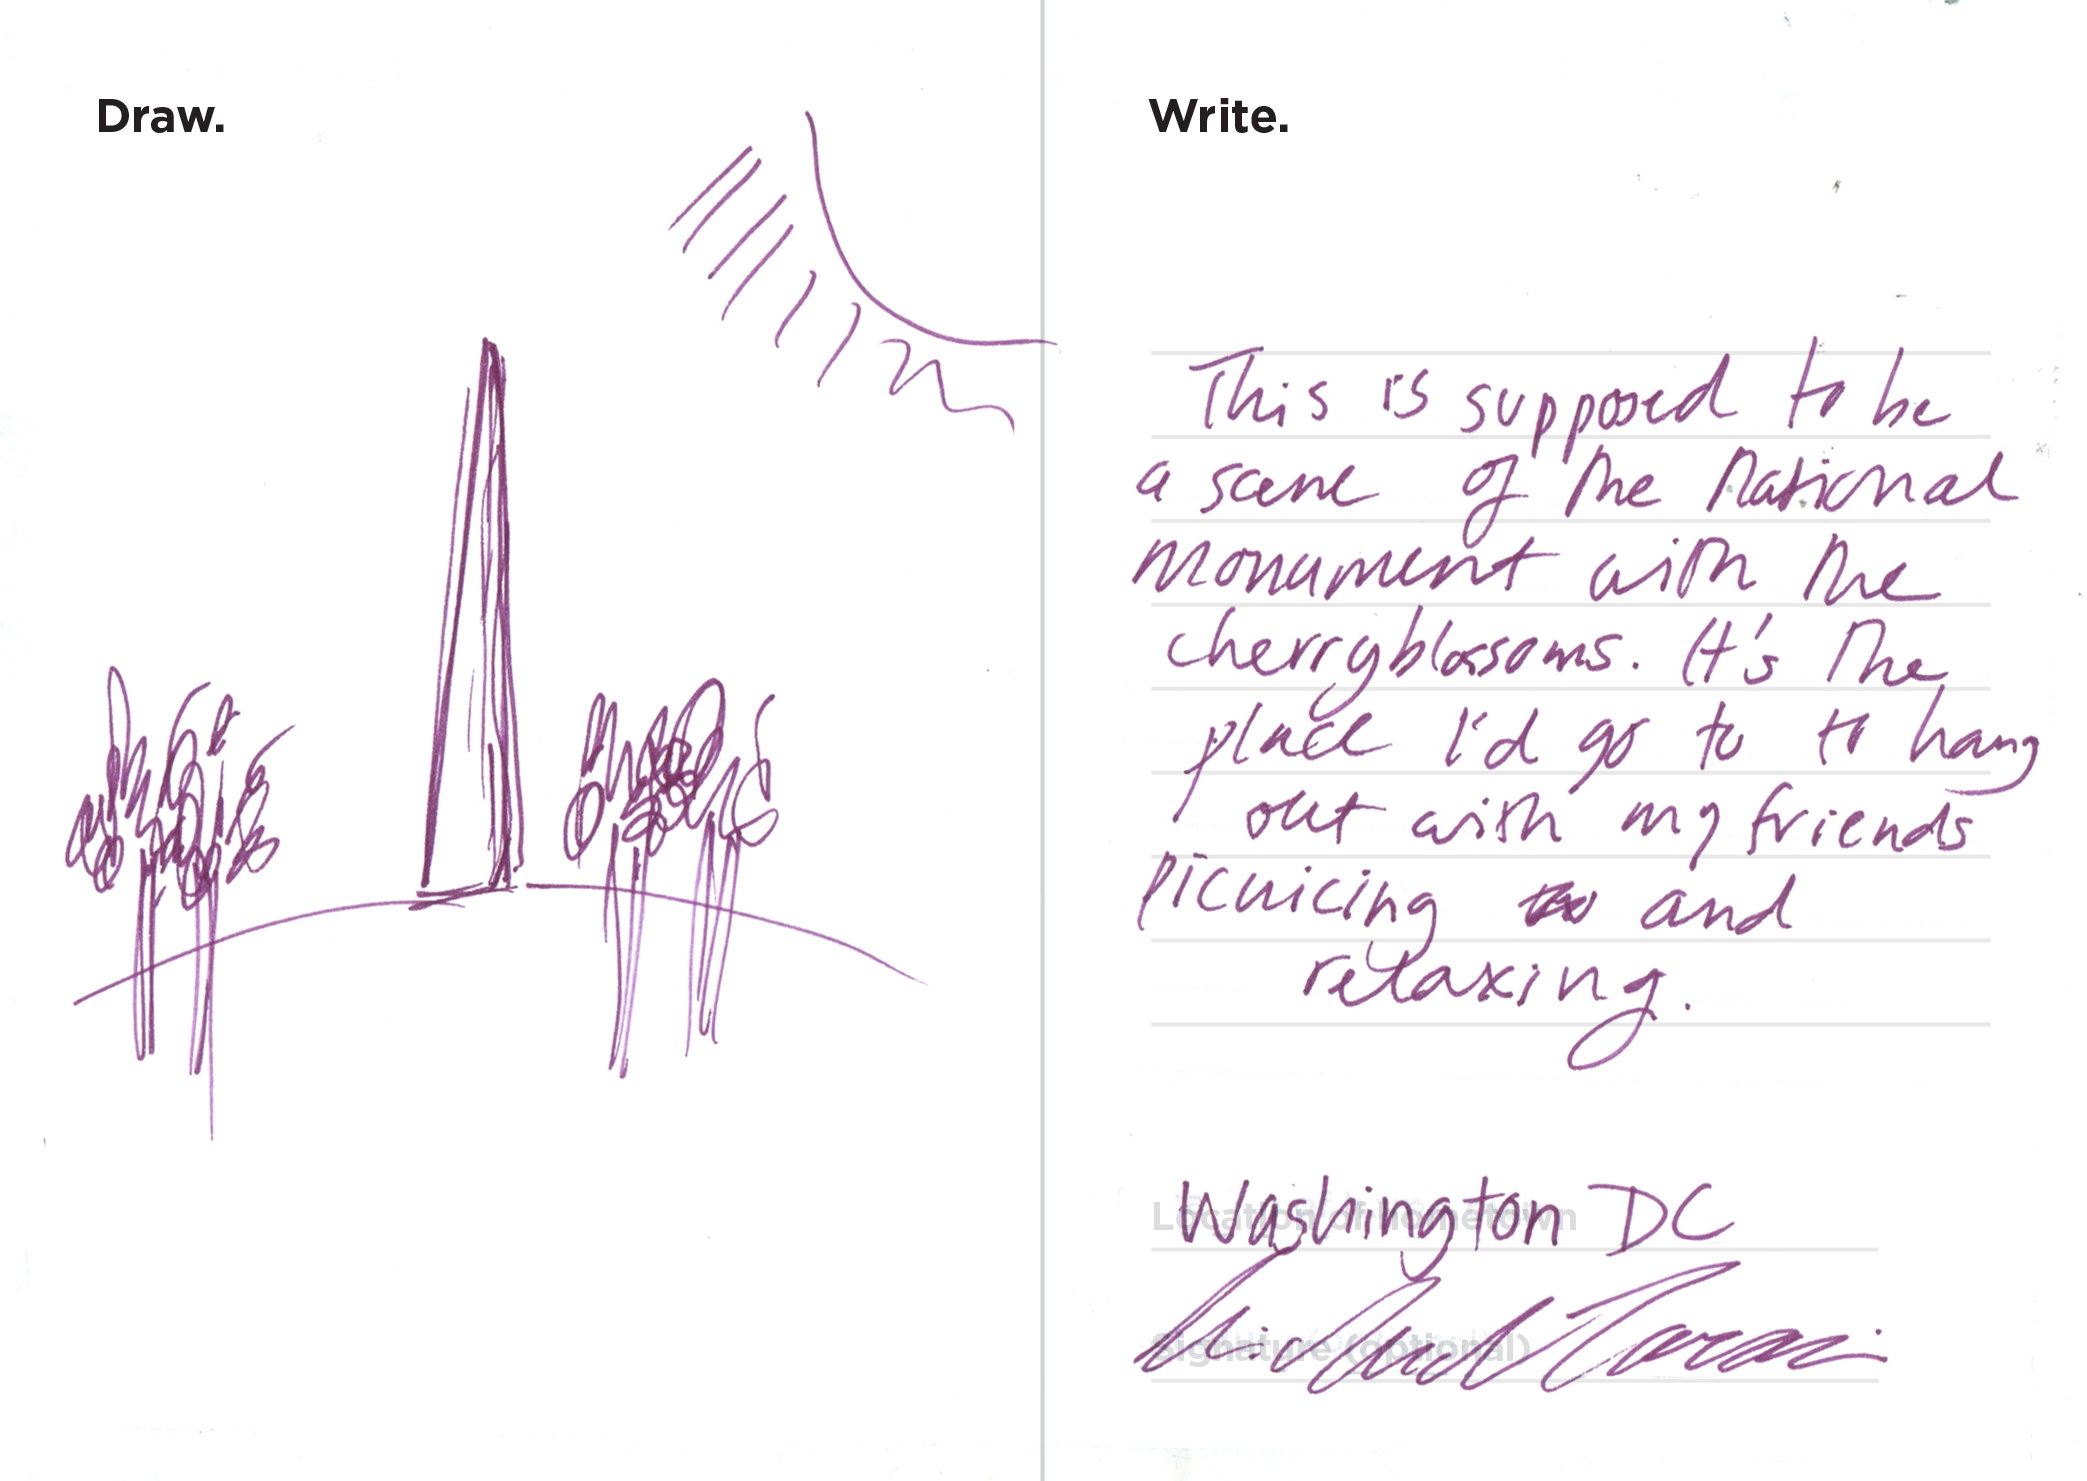 Draw.
Write.
This is supposed to be
a scene of the National
Monument with the
cherryblossoms. It's the
place I'd go to to hang
out with my friends
picnicing and
relaxing.
Location of hometown
Washington DC
Signature (optional)
Michael